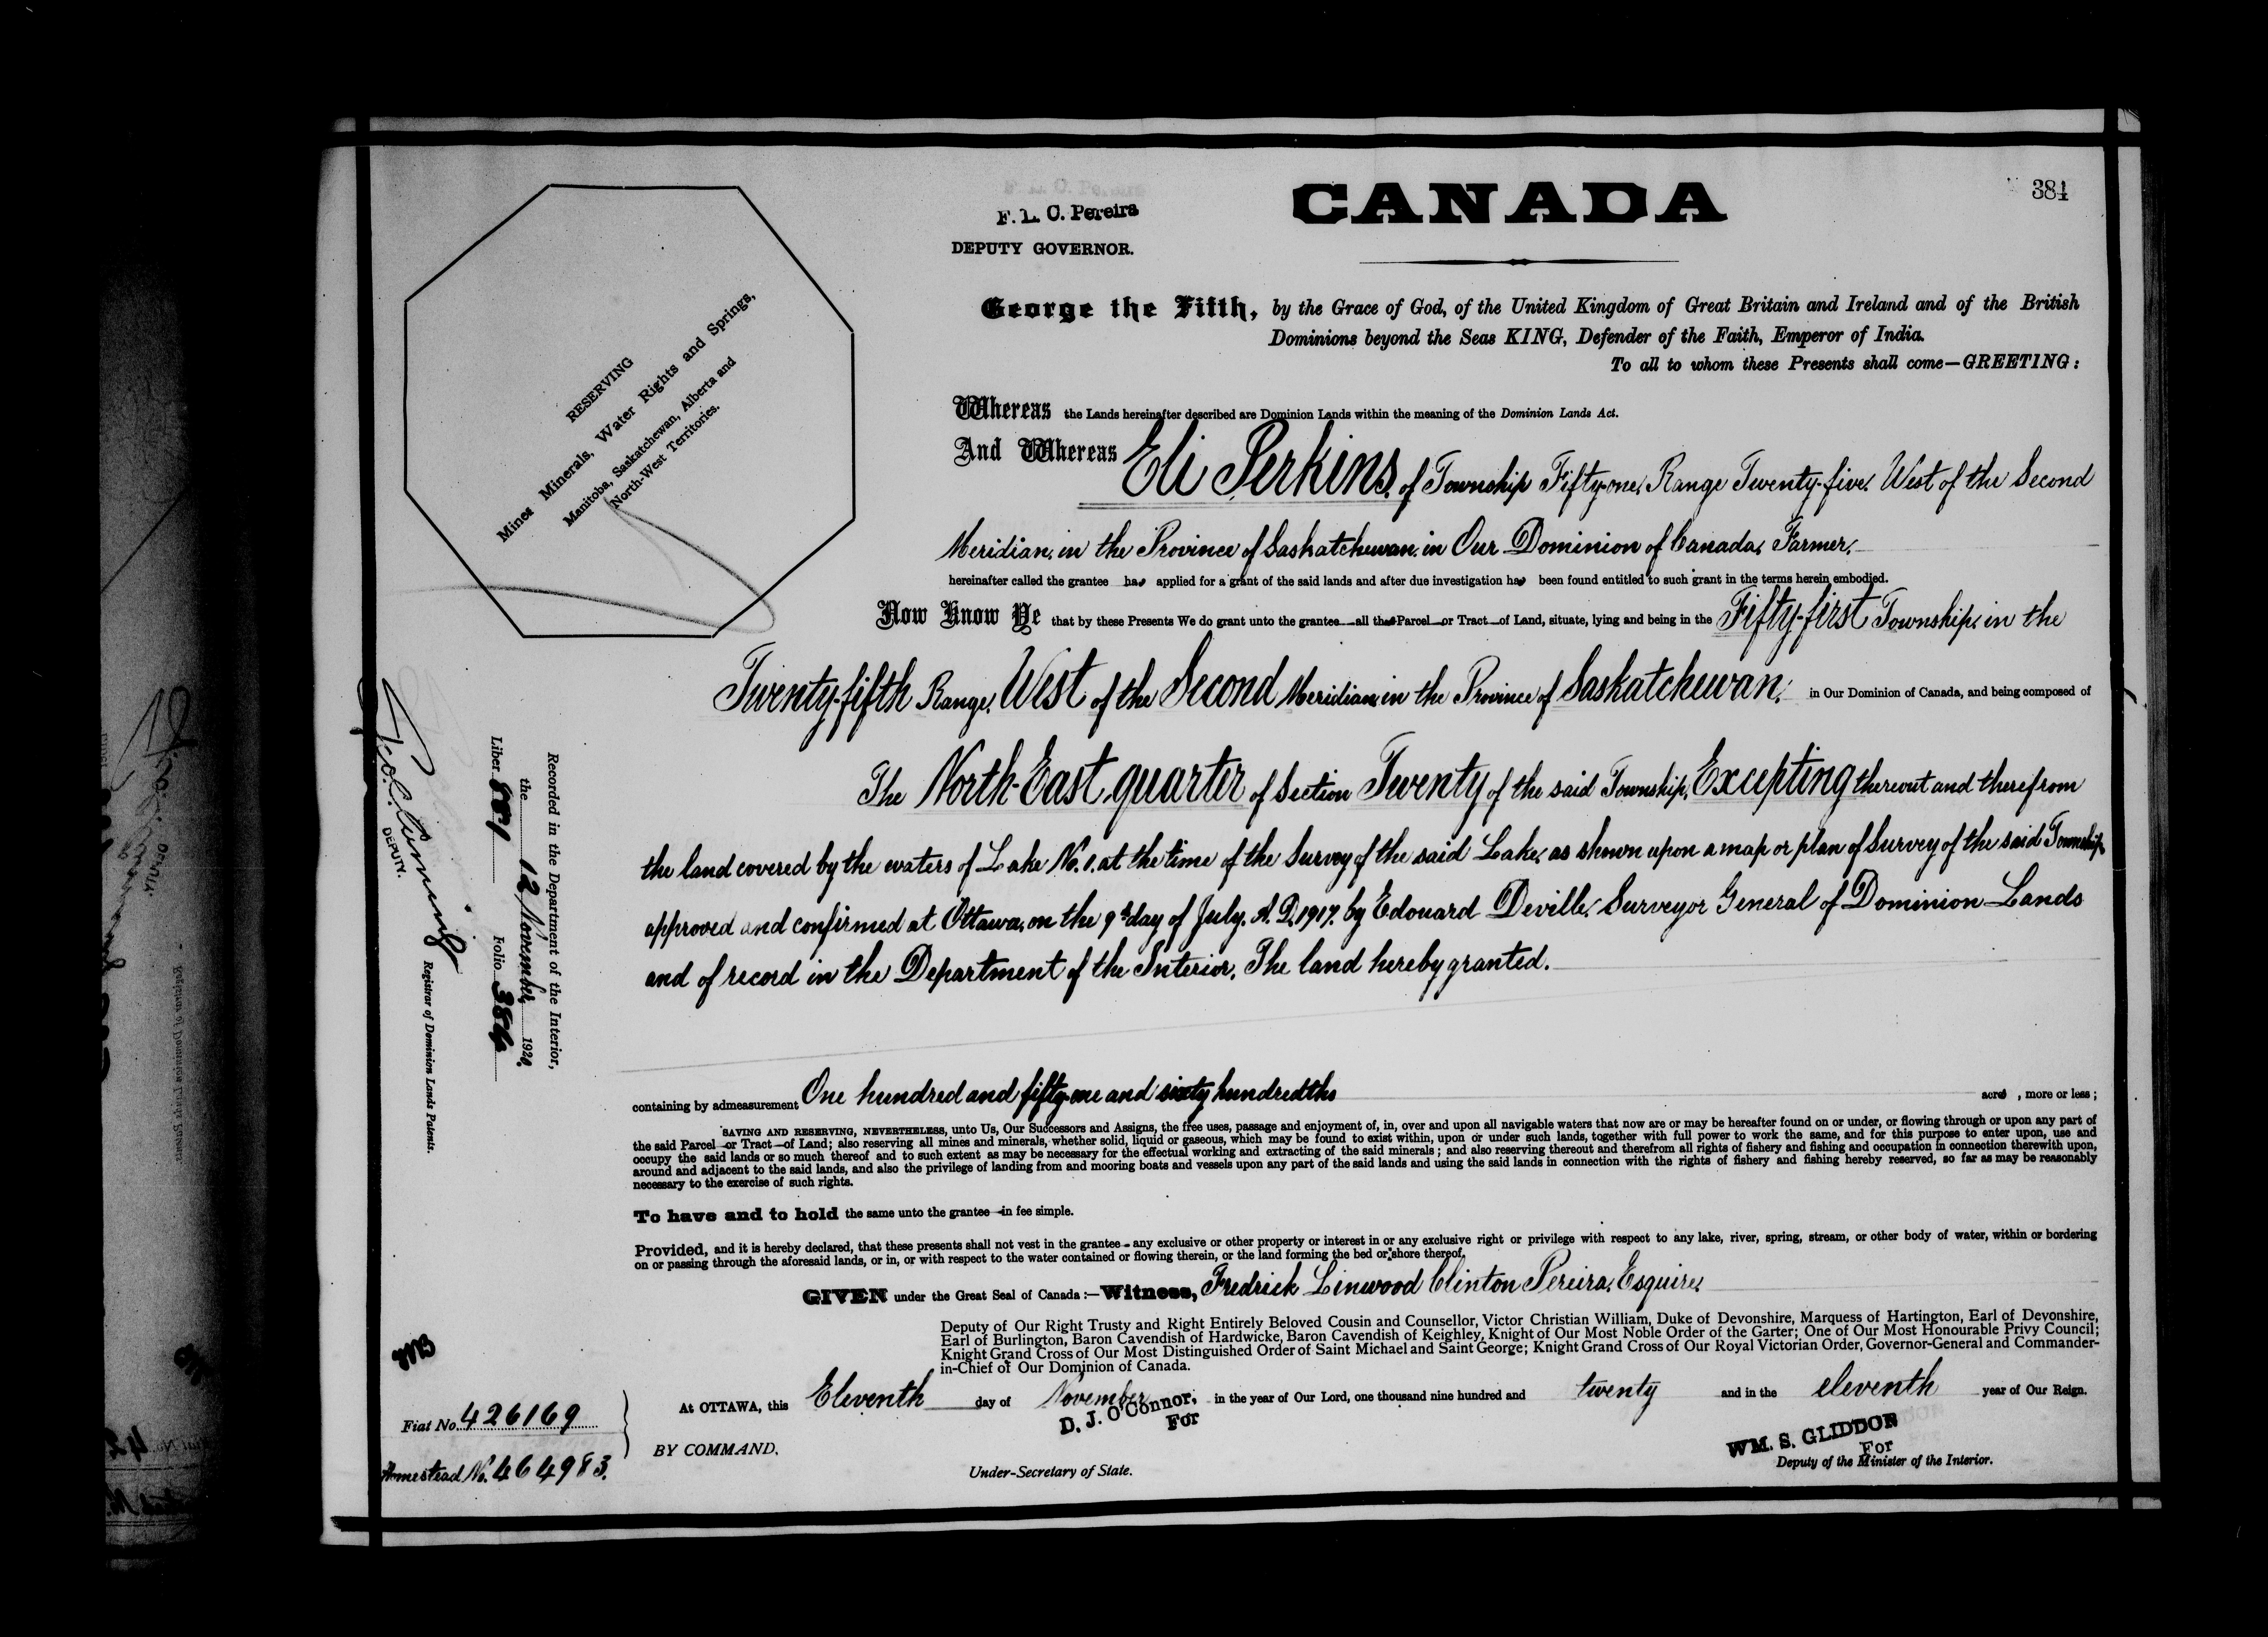 384
F. L. C. Pereira
DEPUTY GOVERNOR.
CANADA
George the Fifth, by the Grace of God, of the United Kingdom of Great Britain and Ireland and of the British
Dominions beyond the Seas KING, Defender of the Faith, Emperor of India.
To all to whom these Presents shall come—GREETING:
RESERVING
Mines Minerals, Water Rights and Springs,
Manitoba, Saskatchewan, Alberta and
North-West Territories.
Whereas the Lands hereinafter described are Dominion Lands within the meaning of the Dominion Lands Act.
And Whereas Eli Perkins, of Township Fifty-one, Range Twenty-five, West of the Second
Meridian, in the Province of Saskatchewan, in Our Dominion of Canada, Farmer,
hereinafter called the grantee has applied for a grant of the said lands and after due investigation has been found entitled to such grant in the terms herein embodied.
Now Know Ye that by these Presents We do grant unto the grantee all that Parcel or Tract of Land, situate, lying and being in the Fifty-first Township, in the
Twenty-fifth Range, West of the Second Meridian, in the Province of Saskatchewan, in Our Dominion of Canada, and being composed of
The North-East quarter of Section Twenty of the said Township, Excepting thereout and therefrom
the land covered by the waters of Lake No. 1. at the time of the Survey of the said Lake, as shewn upon a map or plan of Survey of the said Township
approved and confirmed at Ottawa, on the 9th day of July, A. D. 1917. by Edouard Deville, Surveyor General of Dominion Lands
and of record in the Department of the Interior. The land hereby granted.
containing by admeasurement One hundred and fifty-one and sixty hundredths acres, more or less;
SAVING AND RESERVING, NEVERTHELESS, unto Us, Our Successors and Assigns, the free uses, passage and enjoyment of, in, over and upon all navigable waters that now are or may be hereafter found on or under, or flowing through or upon any part of
the said Parcel or Tract of Land; also reserving all mines and minerals, whether solid, liquid or gaseous, which may be found to exist within, upon or under such lands, together with full power to work the same, and for this purpose to enter upon, use and
occupy the said lands or so much thereof and to such extent as may be necessary for the effectual working and extracting of the said minerals; and also reserving thereout and therefrom all rights of fishery and fishing and occupation in connection therewith upon,
around and adjacent to the said lands, and also the privilege of landing from and mooring boats and vessels upon any part of the said lands and using the said lands in connection with the rights of fishery and fishing hereby reserved, so far as may be reasonably
necessary to the exercise of such rights.
To have and to hold the same unto the grantee in fee simple.
Provided, and it is hereby declared, that these presents shall not vest in the grantee any exclusive or other property or interest in or any exclusive right or privilege with respect to any lake, river, spring, stream, or other body of water, within or bordering
on or passing through the aforesaid lands, or in, or with respect to the water contained or flowing therein, or the land forming the bed or shore thereof.
GIVEN under the Great Seal of Canada:—Witness, Fredrick Linwood Clinton Pereira, Esquire,
Deputy of Our Right Trusty and Right Entirely Beloved Cousin and Counsellor, Victor Christian William, Duke of Devonshire, Marquess of Hartington, Earl of Devonshire,
Earl of Burlington, Baron Cavendish of Hardwicke, Baron Cavendish of Keighley, Knight of Our Most Noble Order of the Garter; One of Our Most Honourable Privy Council;
Knight Grand Cross of Our Most Distinguished Order of Saint Michael and Saint George; Knight Grand Cross of Our Royal Victorian Order, Governor-General and Commander-
in-Chief of Our Dominion of Canada.
At OTTAWA, this Eleventh day of November in the year of Our Lord, one thousand nine hundred and twenty and in the eleventh year of Our Reign.
BY COMMAND,
D. J. O'Connor,
For
Under-Secretary of State.
WM. S. GLIDDON
For
Deputy of the Minister of the Interior.
Recorded in the Department of the Interior,
the 12 November, 1920.
Liber Folio 384
DEPUTY.
Registrar of Dominion Lands Patents.
Fiat No. 426169
Homestead No. 464983.